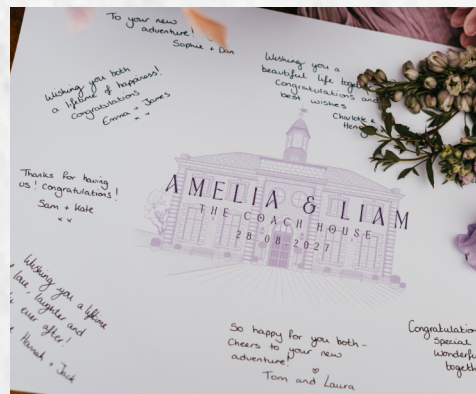 To your new
adventure!
Sophie + Dan
Wishing you both
a lifetime of happiness!
Congratulations
Emma + James
x x
Wishing you a
beautiful life together
Congratulations and
best wishes
Charlotte &
Henry
Thanks for having
us! Congratulations!
Sam + Kate
x x
AMELIA & LIAM
THE COACH HOUSE
28.08.2027
Wishing you a lifetime
love, laughter and
ever after!
Hannah + Jack
So happy for you both -
Cheers to your new
adventure!
Tom and Laura
Congratulation
special
wonderfu
togeth